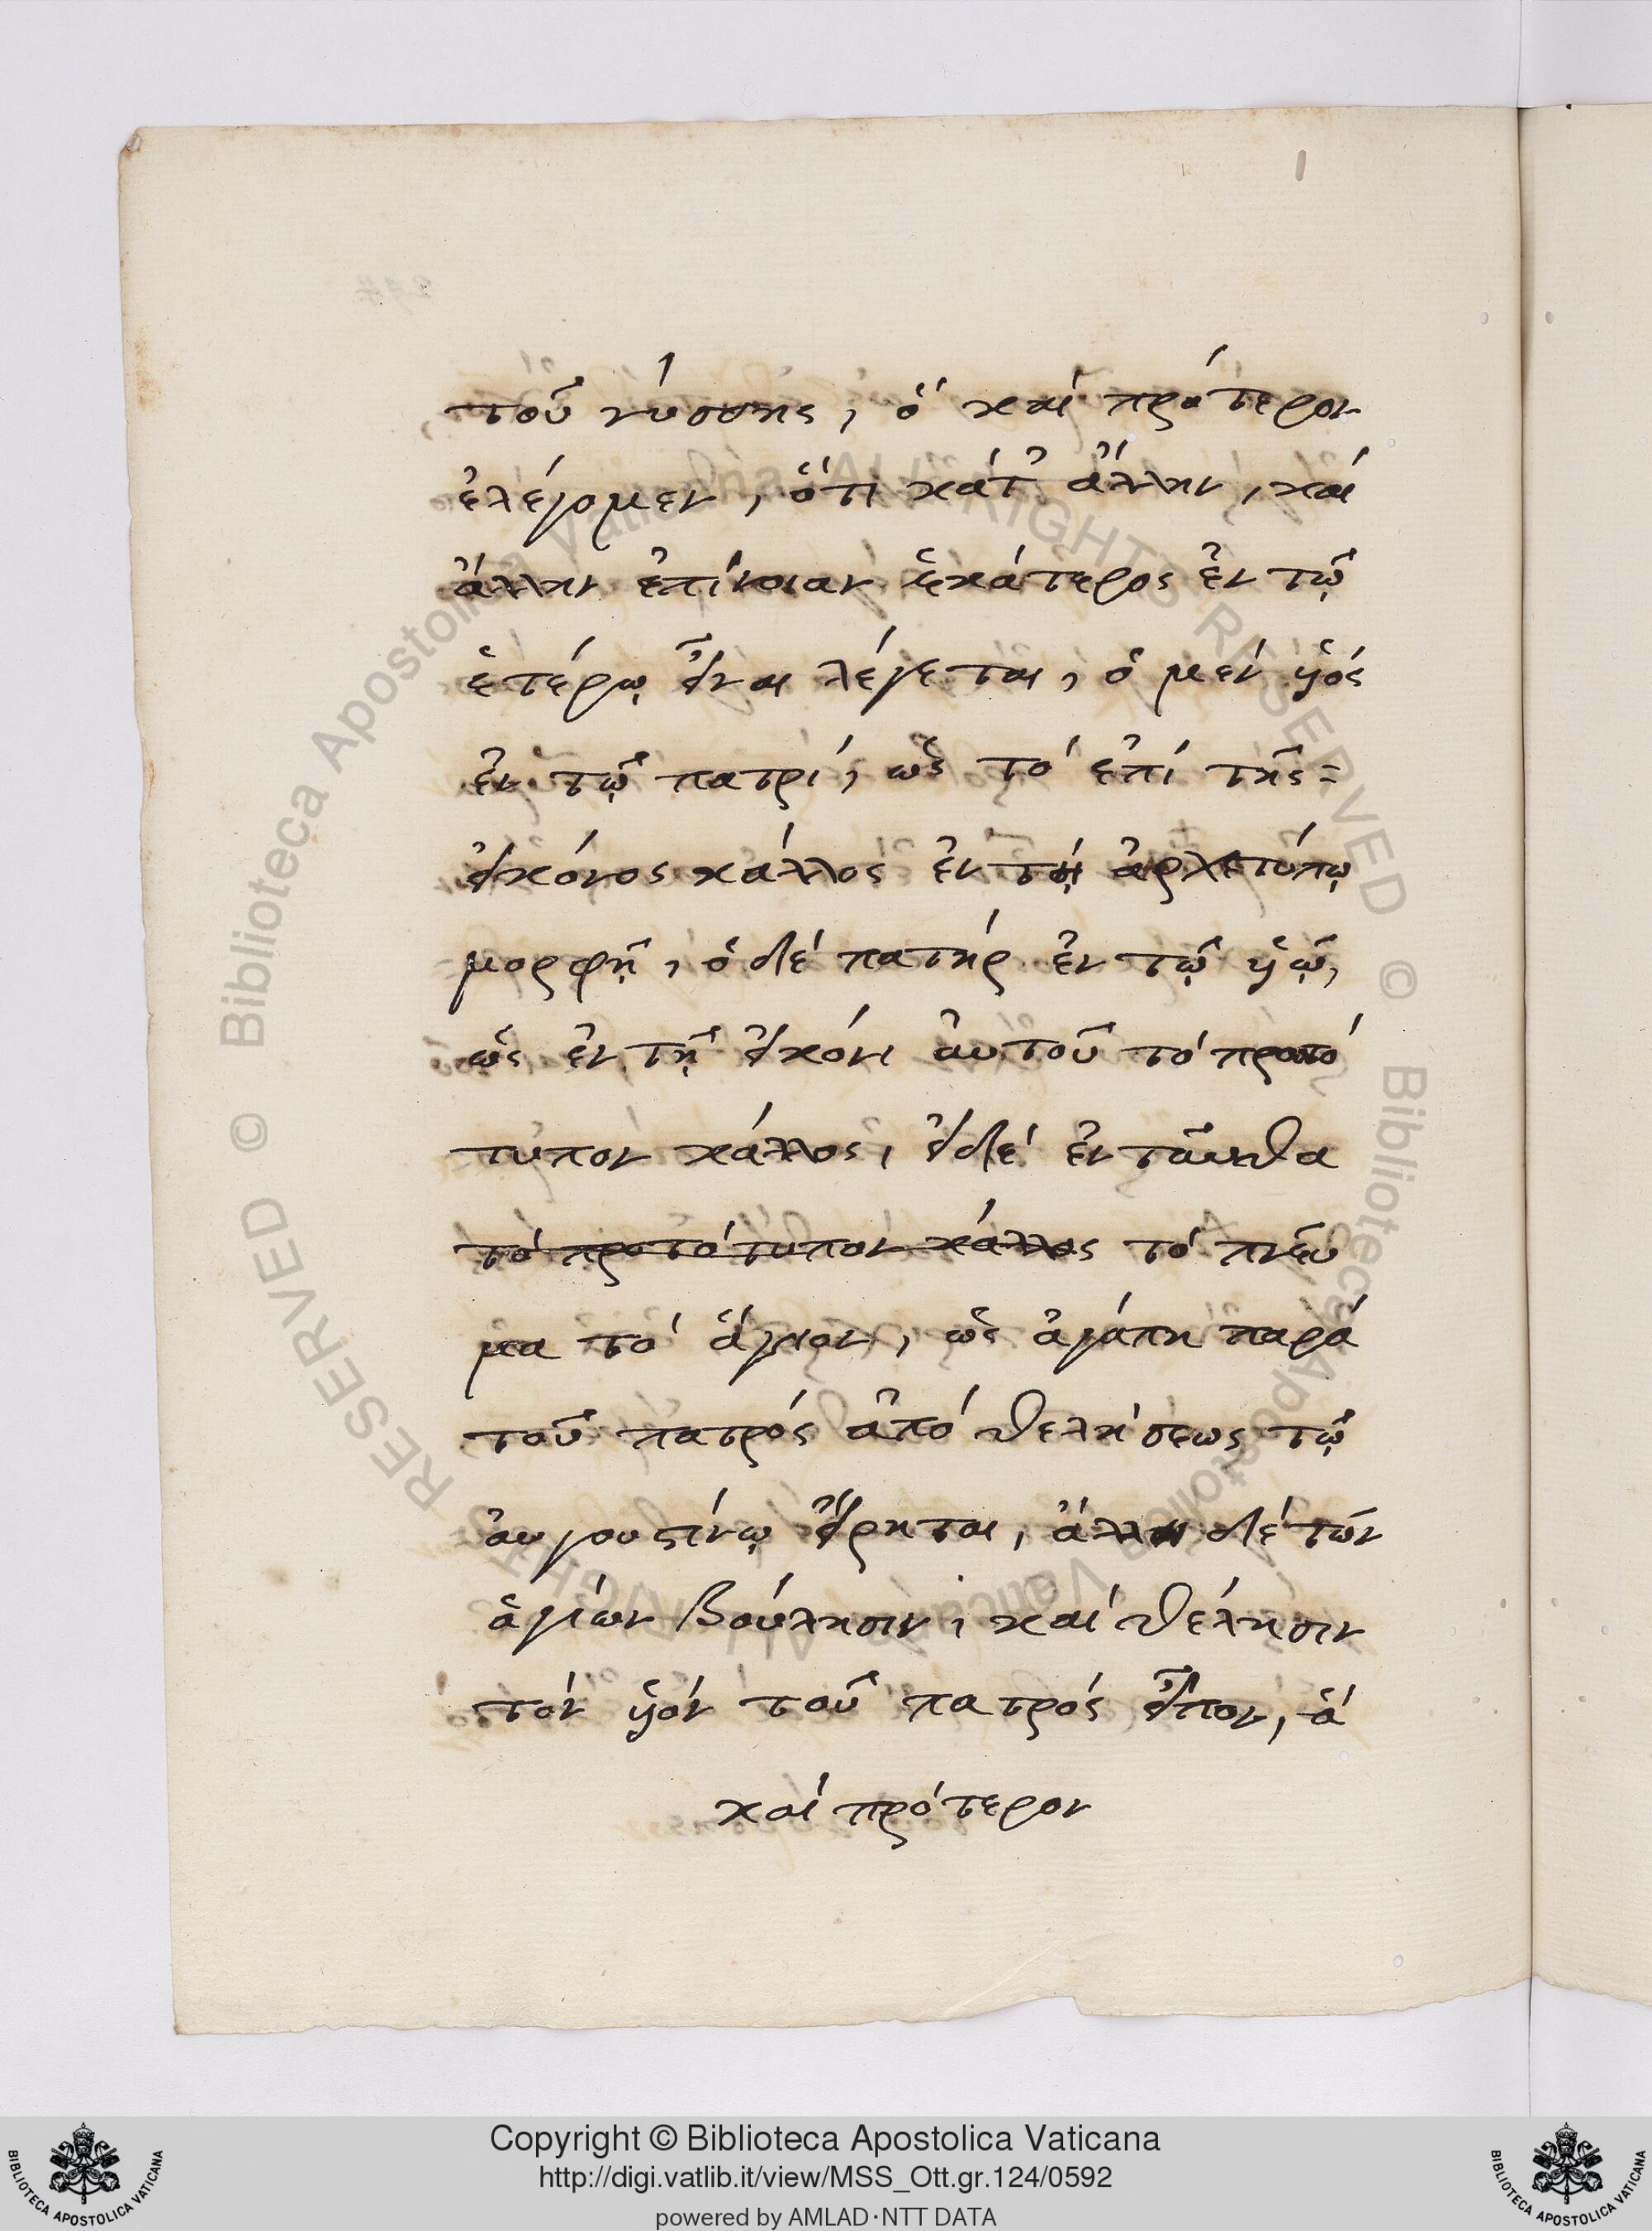 τοῦ νύσσης, ὁ καί πρότερον
ἐλέγομεν, ὅτι κάτ' ἄλλην, καί
ἄλλην ἐπίνοιαν ἑκάτερος ἐν τῷ
ἑτέρῳ εἶναι λέγεται, ὁ μέν ὑός
ἐν τῷ πατρί, ὡς τό ἐπί τῆς=
εἰκόνος κάλλος ἐν τῇ ἀρχετύπῳ
μορφῇ, ὁ δέ πατήρ ἐν τῷ ὑῷ,
ὡς ἐν τῇ εἰκόνι ἀυτοῦ τό πρωτό
τυπον κάλλος, εἰ δέ ἐνταῦθα
τό πρωτότυπον κάλλος τό πνεῦ
μα τό ἅγιον, ὡς ἀγάπη παρά
τοῦ πατρός ἀπό θελήσεως τῷ
ἀυγουστίνῳ εἴρηται, ἀλλά δέ τῶν
ἁγίων βούλησιν, καί θέλησιν
τόν ὑόν τοῦ πατρός εἶπον, ἁ
καί πρότερον
Copyright © Biblioteca Apostolica Vaticana
http://digi.vatlib.it/view/MSS_Ott.gr.124/0592
powered by AMLAD·NTT DATA